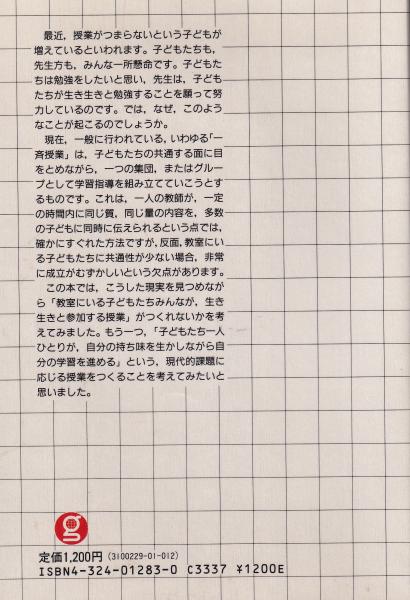 最近，授業がつまらないという子どもが
増えているといわれます。子どもたちも，
先生方も，みんな一所懸命です。子どもた
ちは勉強をしたいと思い，先生は，子ども
たちが生き生きと勉強することを願って努
力しているのです。では，なぜ，このよう
なことが起こるのでしょうか。
現在，一般に行われている，いわゆる「一
斉授業」は，子どもたちの共通する面に目
をとめながら，一つの集団，またはグルー
プとして学習指導を組み立てていこうとす
るものです。これは，一人の教師が，一定
の時間内に同じ質，同じ量の内容を，多数
の子どもに同時に伝えられるという点では，
確かにすぐれた方法ですが，反面，教室にい
る子どもたちに共通性が少ない場合，非常
に成立がむずかしいという欠点があります。
この本では，こうした現実を見つめなが
ら「教室にいる子どもたちみんなが，生き
生きと参加する授業」がつくれないかを考
えてみました。もう一つ，「子どもたち一人
ひとりが，自分の持ち味を生かしながら自
分の学習を進める」という，現代的課題に
応じる授業をつくることを考えてみたいと
思いました。
g
定価1,200円 (3100229-01-012)
ISBN4-324-01283-0 C3337 ¥1200E